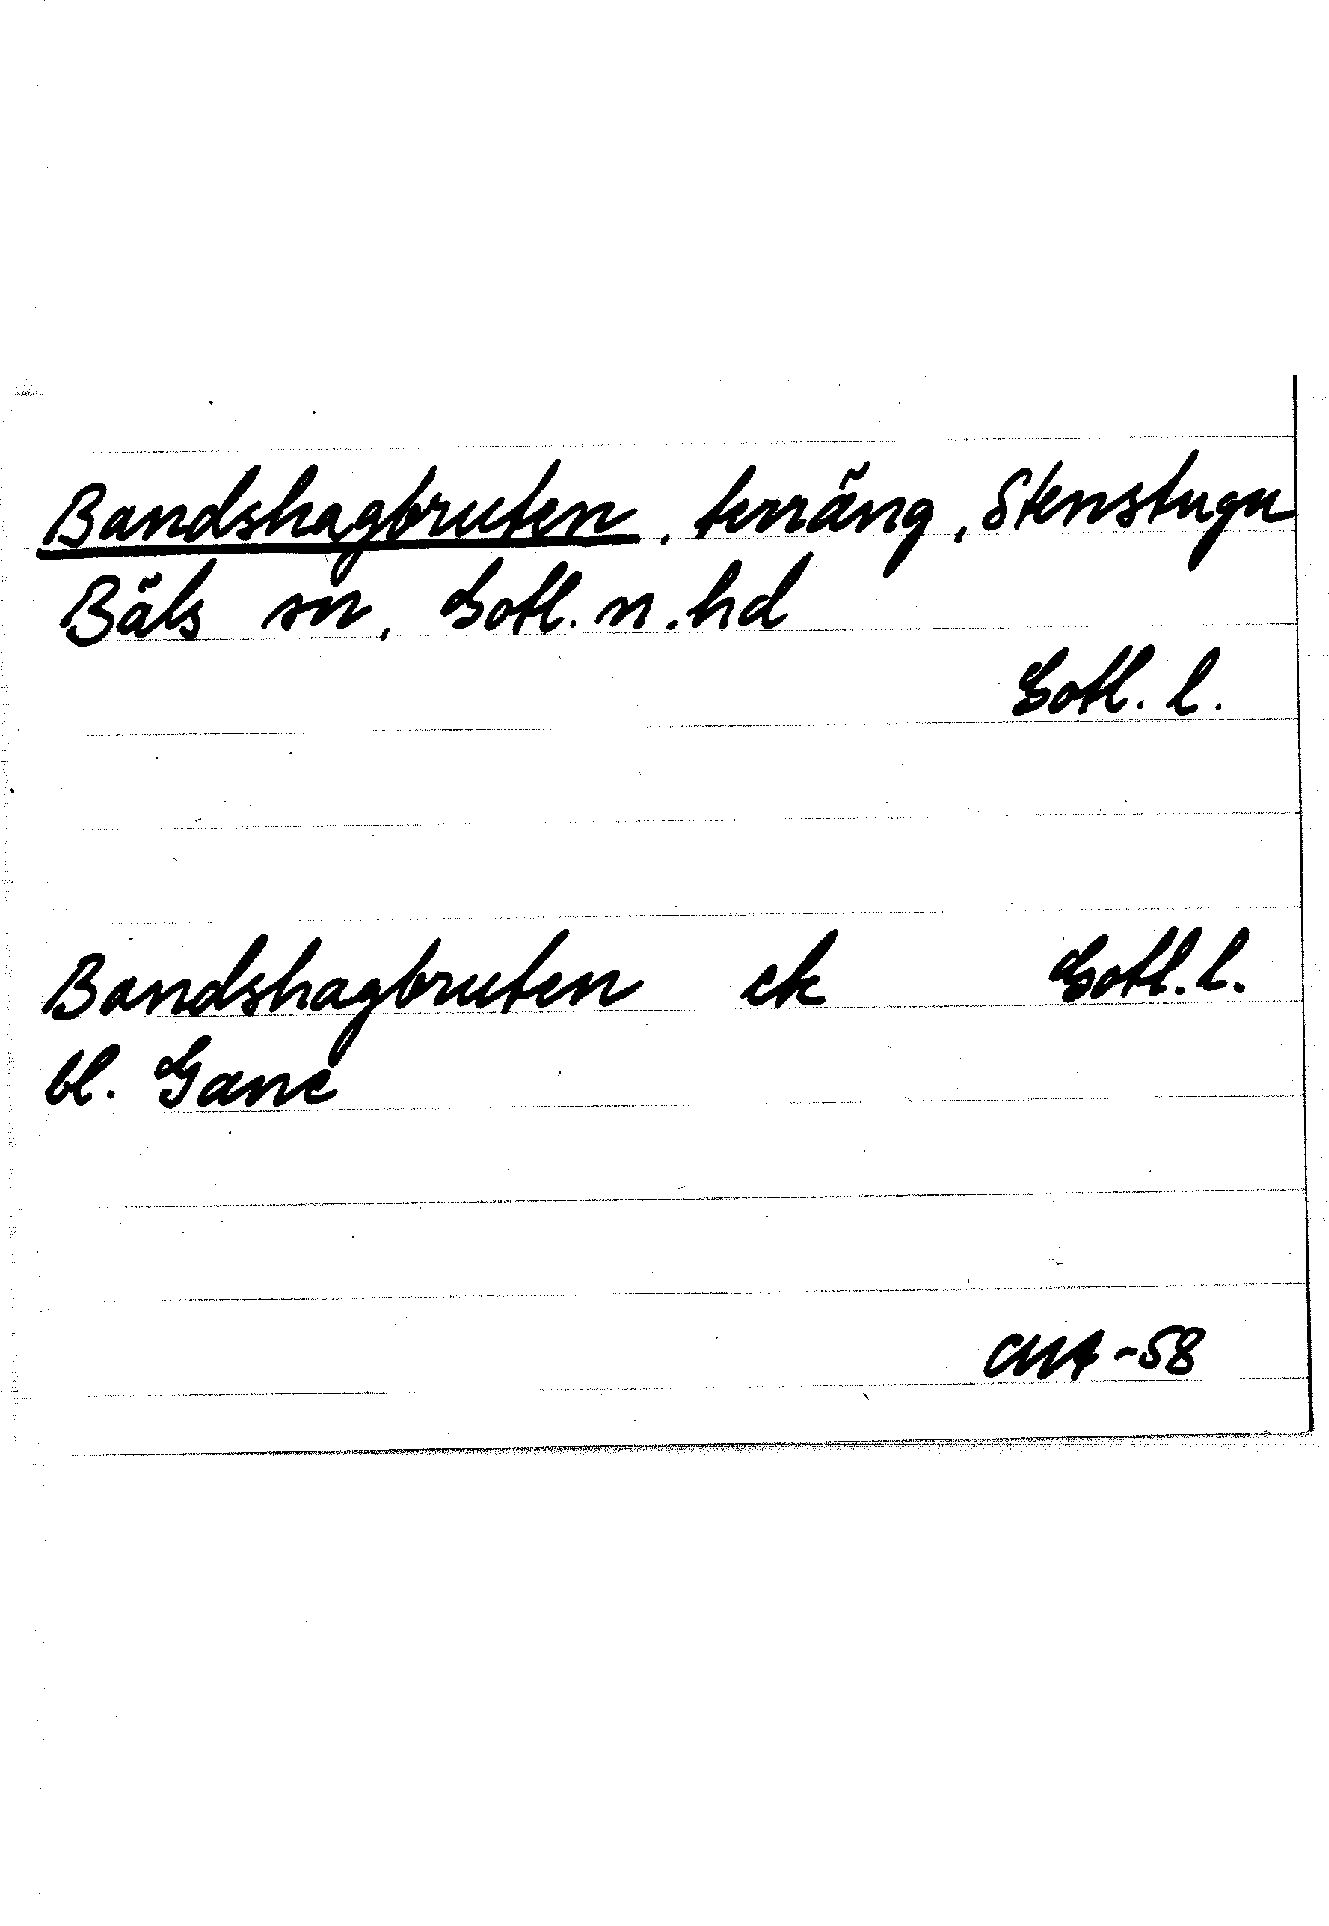 Bandshagbruten, terräng, Stenstugu
Bäls sn, Gotl. n. hd
Gotl. l.
Bandshagbruten ek Gotl. l.
bl. Gane
-58